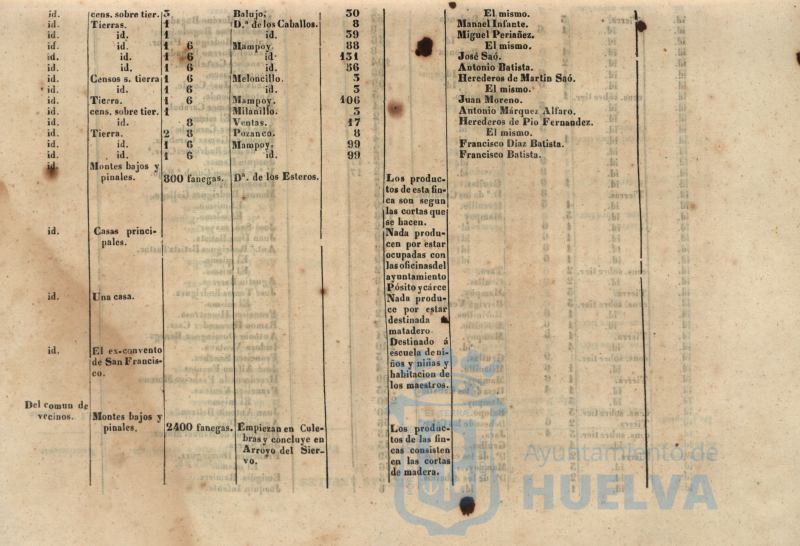 id. cens. sobre tier. 3 Balujo. 30 El mismo.
id. Tierras. 1 D.ª de los Caballos. 8 Manuel Infante.
id. id. 1 id. 39 Miguel Periañez.
id. id. 1 6 Mampoy. 88 El mismo.
id. id. 1 6 id. 131 José Saó.
id. id. 1 6 id. 56 Antonio Batista.
id. Censos s. tierra 1 6 Meloncillo. 3 Herederos de Martin Saó.
id. id. 1 6 id. 3 El mismo.
id. Tierra. 1 6 Mampoy. 106 Juan Moreno.
id. cens. sobre tier. 1 Milanillo. 3 Antonio Márquez Alfaro.
id. id. 8 Ventas. 17 Herederos de Pio Fernandez.
id. Tierra. 2 8 Pozanco. 8 El mismo.
id. id. 1 6 Mampoy. 99 Francisco Diaz Batista.
id. id. 1 6 id. 99 Francisco Batista.
id. Montes bajos y
pinales. 800 fanegas. Dª. de los Esteros. Los produc-
tos de esta fin-
ca son segun
las cortas que
se hacen.
id. Casas princi- Nada produ-
pales. cen por estar
ocupadas con
las oficinas del
ayuntamiento
Pósito y cárce
id. Una casa. Nada produ-
ce por estar
destinada á
matadero
Destinado á
id. El ex-convento escuela de ni-
de San Francis- ños y niñas y
co. habitacion de
los maestros.
Del comun de
vecinos. Montes bajos y
pinales. 2400 fanegas. Empiezan en Cule- Los produc-
bras y concluye en tos de las fin-
Arroyo del Sier- cas consisten
vo. en las cortas
de madera.
Ayuntamiento de
HUELVA